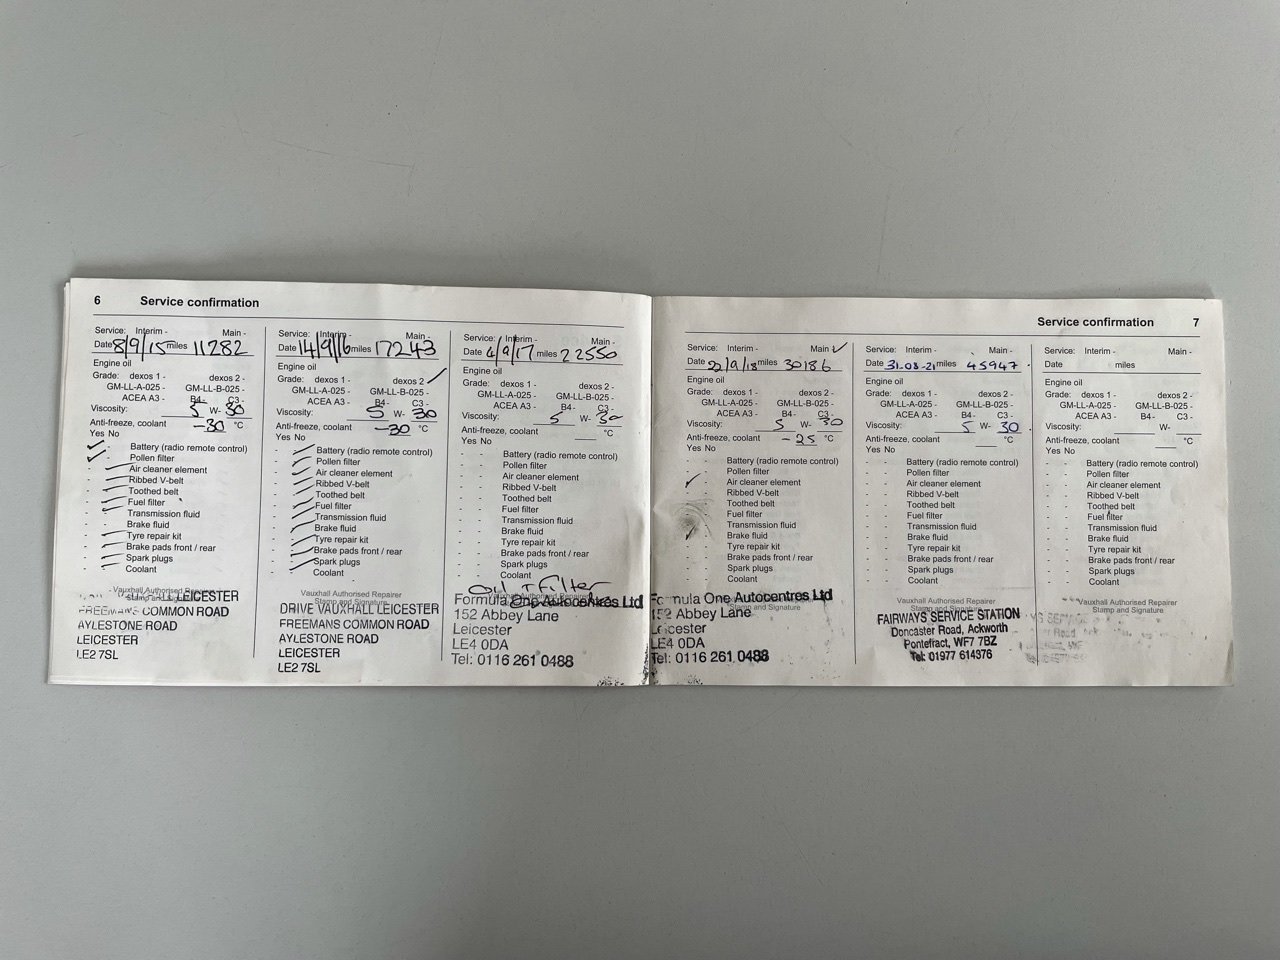 6 Service confirmation
Service: Interim - Main -
Date 8/9/15 miles 11282
Engine oil
Grade: dexos 1 - dexos 2 -
GM-LL-A-025 - GM-LL-B-025 -
ACEA A3 - B4- C3 -
Viscosity: 5 W- 30
Anti-freeze, coolant -30 °C
Yes No
- Battery (radio remote control)
- Pollen filter
- Air cleaner element
- Ribbed V-belt
- Toothed belt
- Fuel filter
- Transmission fluid
- Brake fluid
- Tyre repair kit
- Brake pads front / rear
- Spark plugs
- Coolant
Vauxhall Authorised Repairer
Stamp and Signature
LEICESTER
FREEMANS COMMON ROAD
AYLESTONE ROAD
LEICESTER
LE2 7SL
Service: Interim - Main -
Date 14/9/16 miles 17243
Engine oil
Grade: dexos 1 - dexos 2 ✓
GM-LL-A-025 - GM-LL-B-025 -
ACEA A3 - B4- C3 -
Viscosity: 5 W- 30
Anti-freeze, coolant -30 °C
Yes No
- Battery (radio remote control)
- Pollen filter
- Air cleaner element
- Ribbed V-belt
- Toothed belt
- Fuel filter
- Transmission fluid
- Brake fluid
- Tyre repair kit
- Brake pads front / rear
- Spark plugs
- Coolant
Vauxhall Authorised Repairer
Stamp and Signature
DRIVE VAUXHALL LEICESTER
FREEMANS COMMON ROAD
AYLESTONE ROAD
LEICESTER
LE2 7SL
Service: Interim - Main -
Date 4/9/17 miles 22550
Engine oil
Grade: dexos 1 - dexos 2 -
GM-LL-A-025 - GM-LL-B-025 -
ACEA A3 - B4- C3 -
Viscosity: 5 W- 30
Anti-freeze, coolant °C
Yes No
- - Battery (radio remote control)
- - Pollen filter
- - Air cleaner element
- - Ribbed V-belt
- - Toothed belt
- - Fuel filter
- - Transmission fluid
- - Brake fluid
- - Tyre repair kit
- - Brake pads front / rear
- - Spark plugs
- - Coolant
Oil + Filter
Formula One Autocentres Ltd
152 Abbey Lane
Leicester
LE4 0DA
Tel: 0116 261 0488
Service confirmation 7
Service: Interim - Main ✓
Date 22/9/18 miles 30186
Engine oil
Grade: dexos 1 - dexos 2 -
GM-LL-A-025 - GM-LL-B-025 -
ACEA A3 - B4- C3 -
Viscosity: 5 W- 30
Anti-freeze, coolant -25 °C
Yes No
- - Battery (radio remote control)
- - Pollen filter
✓ - Air cleaner element
- - Ribbed V-belt
- - Toothed belt
- - Fuel filter
- - Transmission fluid
✓ - Brake fluid
- - Tyre repair kit
- - Brake pads front / rear
- - Spark plugs
- - Coolant
Stamp and Signature
Formula One Autocentres Ltd
152 Abbey Lane
Leicester
LE4 0DA
Tel: 0116 261 0488
Service: Interim - Main -
Date 31-08-21 miles 45947
Engine oil
Grade: dexos 1 - dexos 2 -
GM-LL-A-025 - GM-LL-B-025 -
ACEA A3 - B4- C3 -
Viscosity: 5 W- 30
Anti-freeze, coolant °C
Yes No
- - Battery (radio remote control)
- - Pollen filter
- - Air cleaner element
- - Ribbed V-belt
- - Toothed belt
- - Fuel filter
- - Transmission fluid
- - Brake fluid
- - Tyre repair kit
- - Brake pads front / rear
- - Spark plugs
- - Coolant
Vauxhall Authorised Repairer
Stamp and Signature
FAIRWAYS SERVICE STATION
Doncaster Road, Ackworth
Pontefract, WF7 7BZ
Tel: 01977 614376
Service: Interim - Main -
Date miles
Engine oil
Grade: dexos 1 - dexos 2 -
GM-LL-A-025 - GM-LL-B-025 -
ACEA A3 - B4- C3 -
Viscosity: W-
Anti-freeze, coolant °C
Yes No
- - Battery (radio remote control)
- - Pollen filter
- - Air cleaner element
- - Ribbed V-belt
- - Toothed belt
- - Fuel filter
- - Transmission fluid
- - Brake fluid
- - Tyre repair kit
- - Brake pads front / rear
- - Spark plugs
- - Coolant
Vauxhall Authorised Repairer
Stamp and Signature